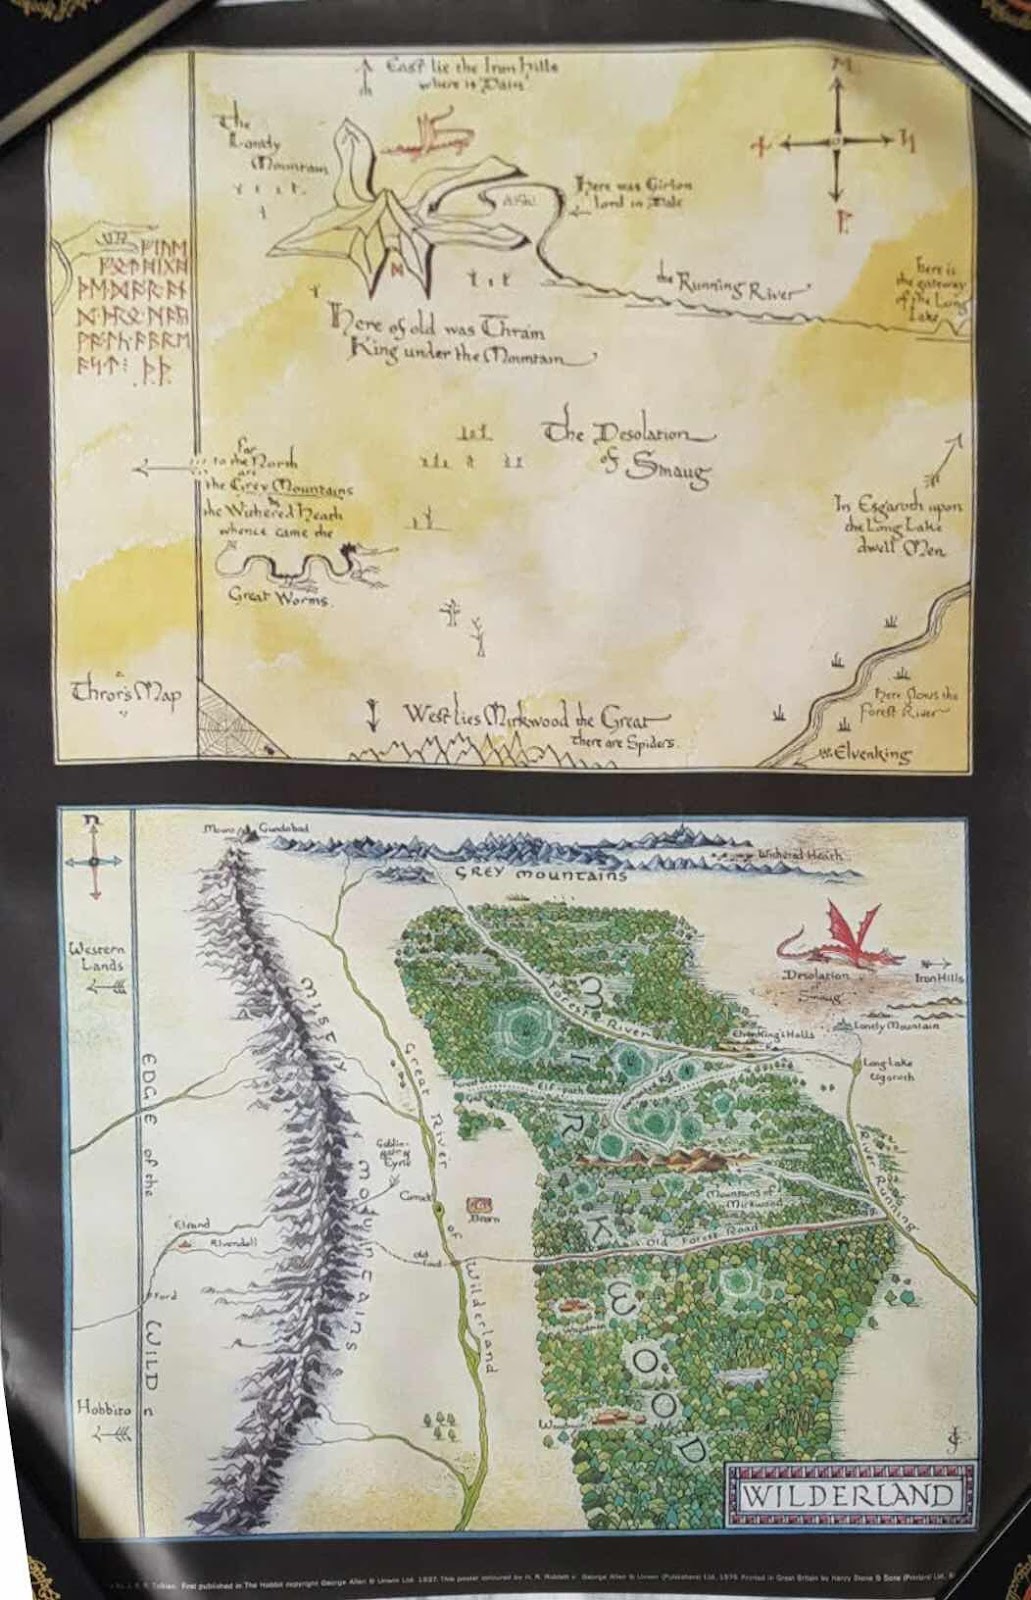 East lie the Iron Hills
where is Dain
The
Lonely
Mountain
Dale
Here was Girion
Lord in Dale
ᚠᛁᚢᛖ
ᚠᚩᛏᚻᛁᚷᚻ
ᚦᛖᛞᚩᚱᚪᚾ
ᚪᛋᛏ᛬ ᚦ·ᚦ·
the Running River
Here is
the gateway
of the Long
Lake
Here of old was Thrain
King under the Mountain
The Desolation
of Smaug
Far
to the North
are
the Grey Mountains
&
the Withered Heath
whence came the
Great Worms.
In Esgaroth upon
the Long Lake
dwell Men
Here flows the
Forest River
Elvenking
Thror's Map
West lies Mirkwood the Great
there are Spiders.
n
Mount Gundabad
Withered Heath
GREY MOUNTAINS
Western
Lands
Desolation
of
Smaug
Iron Hills
Lonely Mountain
Elvenking's Halls
Long Lake
Esgaroth
Forest River
MISTY MOUNTAINS
Great River of Wilderland
Elf-path
EDGE of the WILD
Goblin-
gate &
Eyrie
Carrock
Beorn
Mountains of
Mirkwood
River Running
Old Forest Road
Old
Ford
Rivendell
Ford
MIRKWOOD
Hobbiton
WILDERLAND
First published in The Hobbit copyright George Allen & Unwin Ltd. 1937. This poster coloured by H. E. Riddett © George Allen & Unwin (Publishers) Ltd, 1979. Printed in Great Britain by